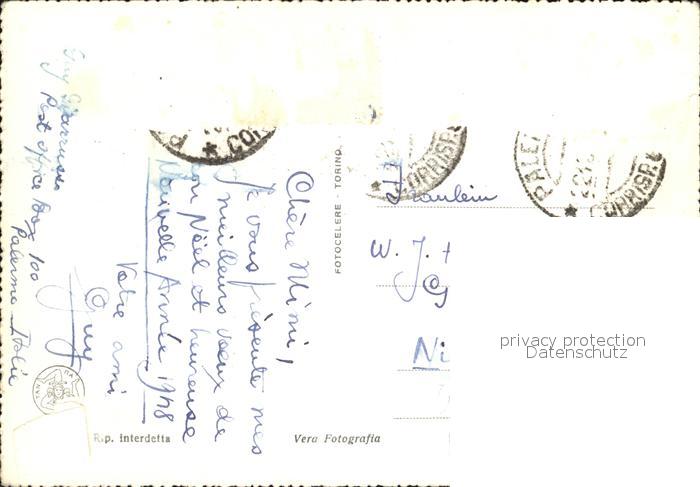 Chère Mimi,
Je vous présente mes
meilleurs voeux de
bon Nöel et heureuse
Nouvelle Année 1948
Votre ami
Guy
Guy
Post Office Box 100
Palermo Italie
FOTOCELERE - TORINO.
CORRISP
CORRISP
PALE
CORRISP
Fräulein
W. J. +
Ni
privacy protection
Datenschutz
Rip. interdetta
Vera Fotografia